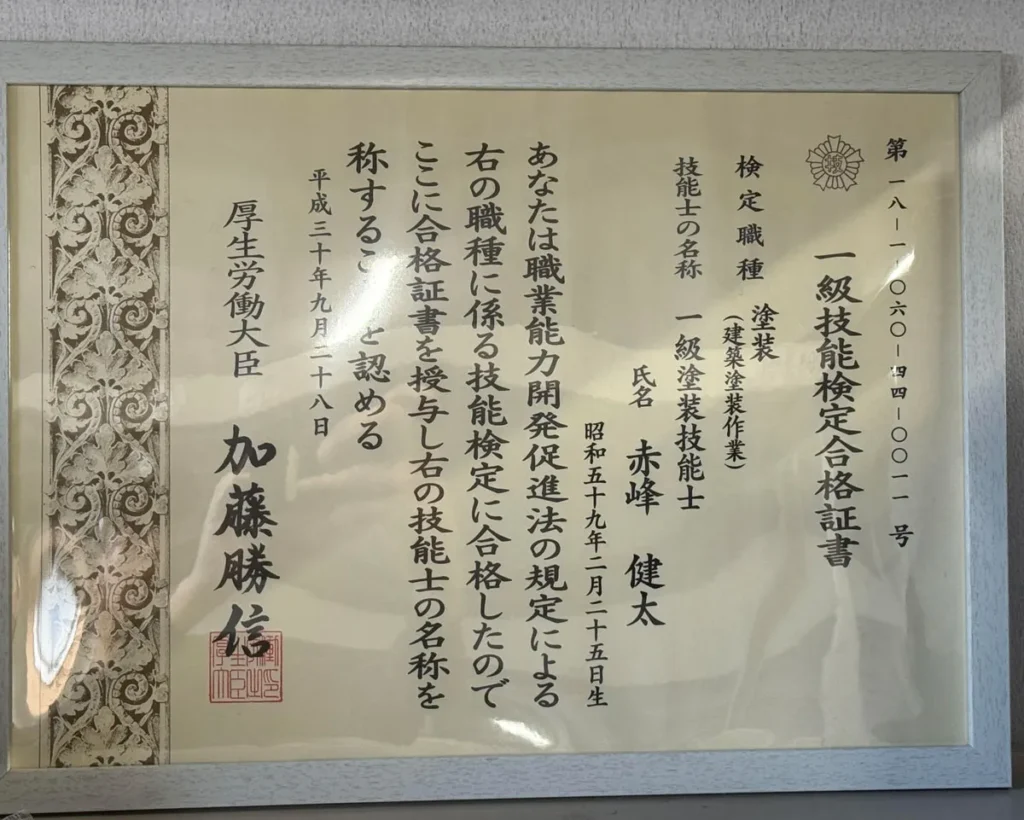 第一八-一-〇六〇-四四-〇〇一一号
一級技能検定合格証書
検定職種 塗装
(建築塗装作業)
技能士の名称 一級塗装技能士
氏名 赤峰 健太
昭和五十九年二月二十五日生
あなたは職業能力開発促進法の規定による
右の職種に係る技能検定に合格したので
ここに合格証書を授与し右の技能士の名称を
称することを認める
平成三十年九月二十八日
厚生労働大臣 加藤勝信